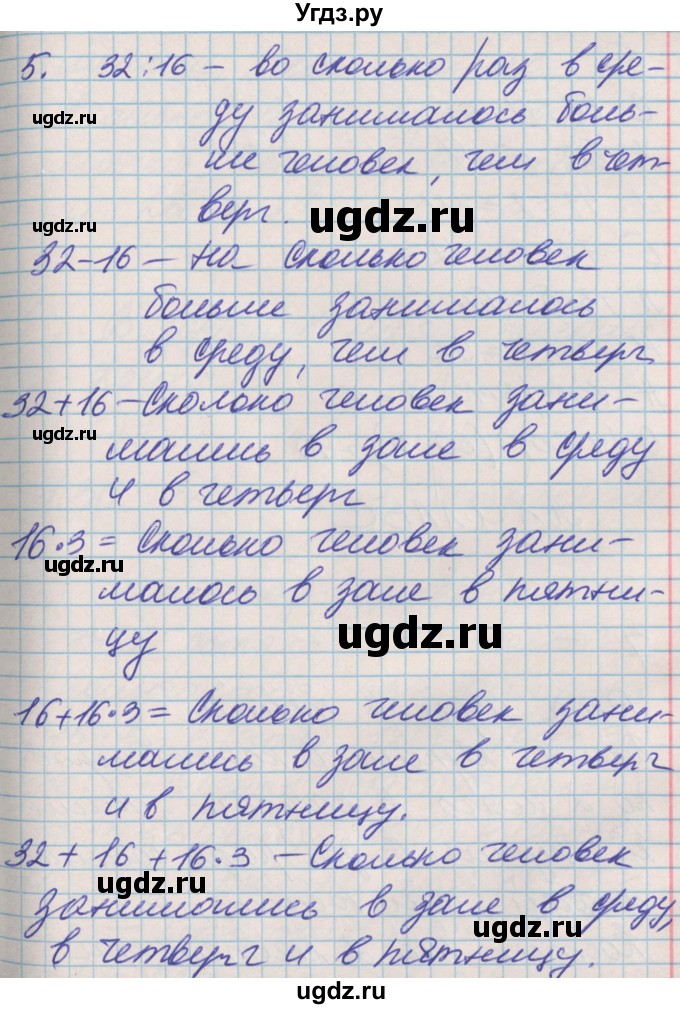 Угдз.ру
5. 32:16 – во сколько раз в сре-
ugdz.ru
ду занималось боль-
ше человек, чем в чет-
ugdz.ru
верг.
ugdz.ru
32-16 – на сколько человек
больше занималось
в среду, чем в четверг
32+16 – Сколоко человек зани-
ugdz.ru
мались в зале в среду
и в четверг
16·3 = Сколько человек зани-
ugdz.ru
малось в зале в пятни-
цу
ugdz.ru
16+16·3 = Сколько человек зани-
ugdz.ru
мались в зале в четверг
и в пятницу.
32 + 16 + 16·3 – Сколько человек
ugdz.ru
занимались в зале в среду,
в четверг и в пятницу.
ugdz.ru
ugdz.ru